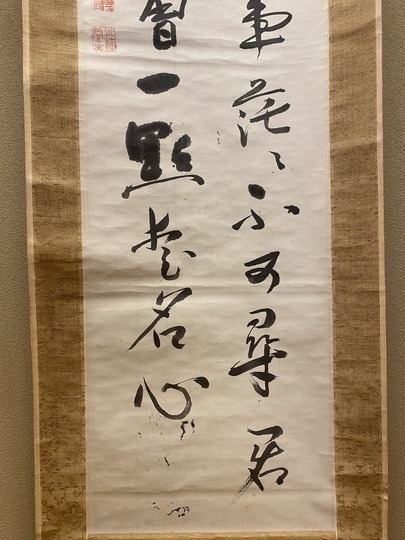 事茫〻不可尋君
曾一點愛名心